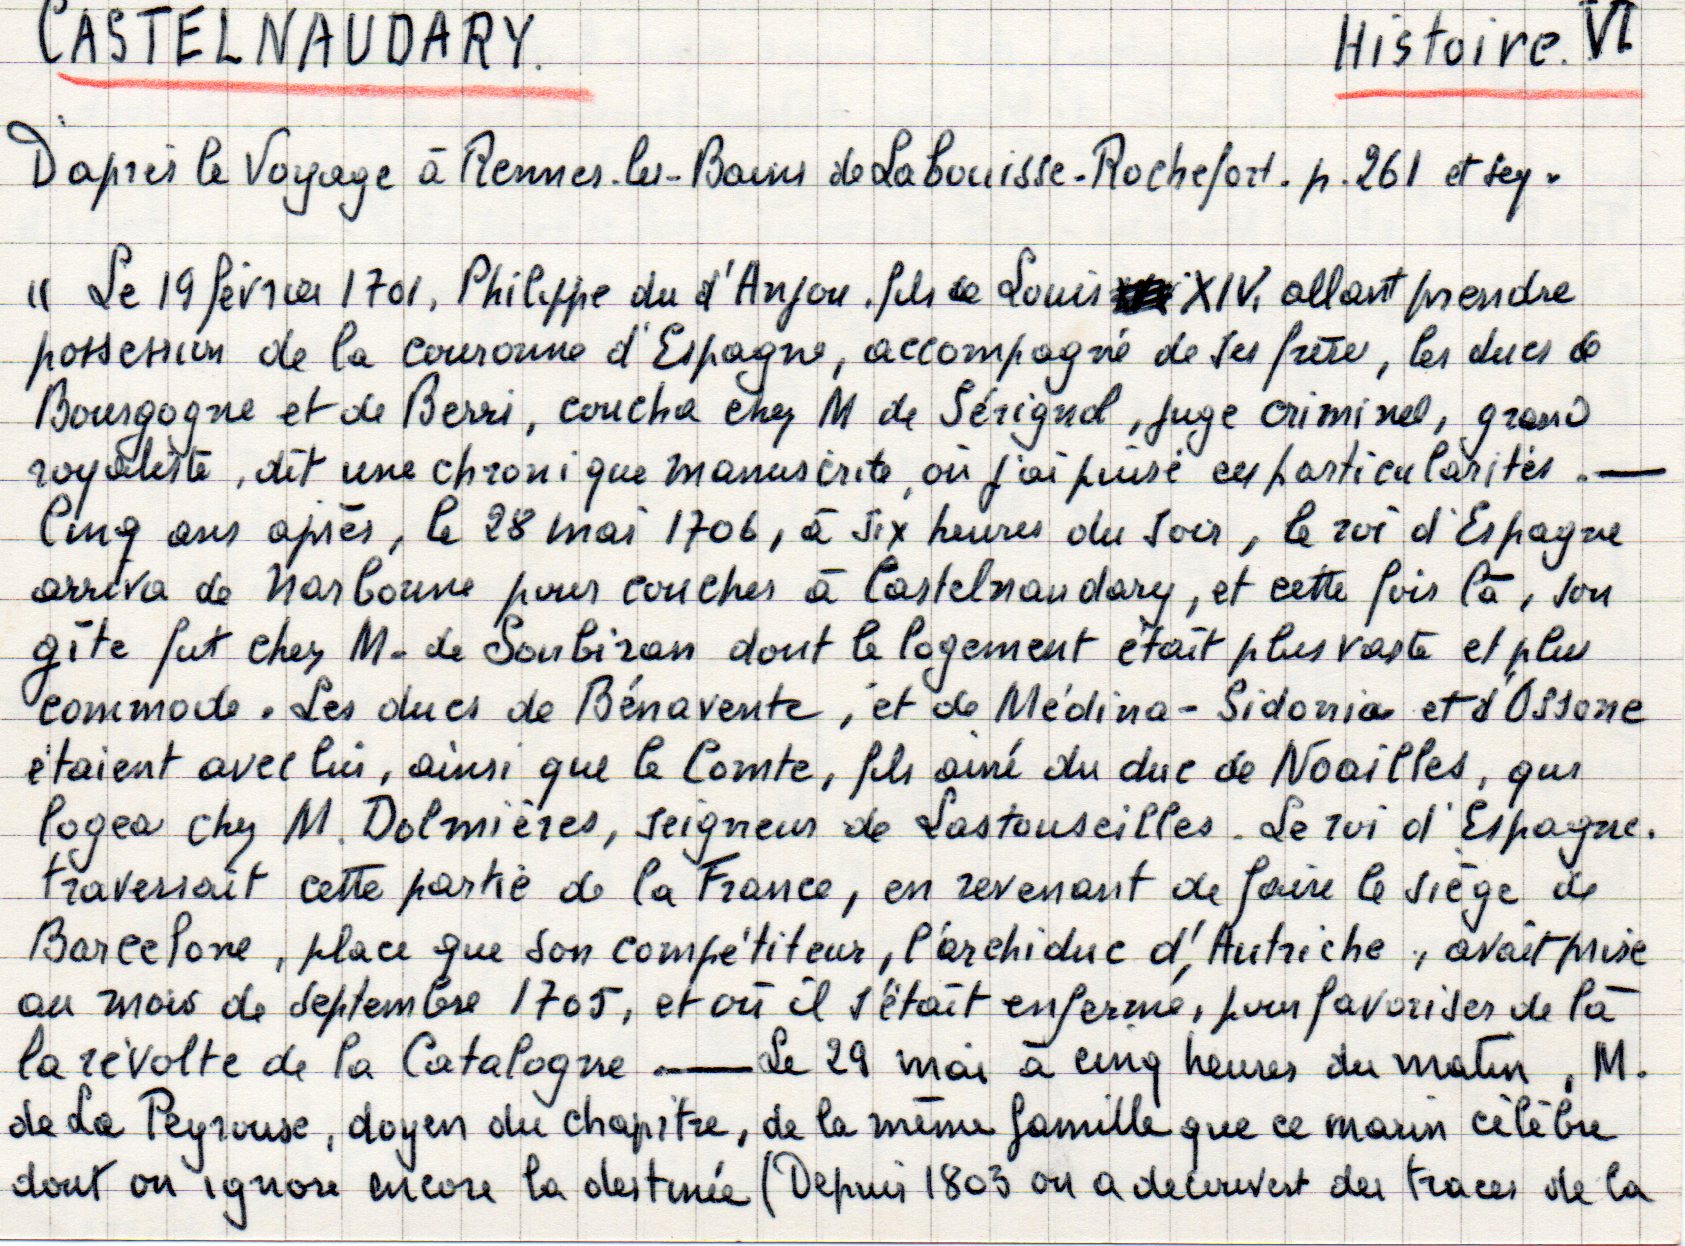 CASTELNAUDARY. Histoire. VI
D'après le Voyage à Rennes-les-Bains de Labouisse-Rochefort. p. 261 et seq.
" Le 19 février 1701, Philippe du d'Anjou, fils de Louis XIV, allant prendre
possession de la couronne d'Espagne, accompagné de ses frère, les ducs de
Bourgogne et de Berri, coucha chez M de Sérignol, juge criminel, grand
royaliste, dit une chronique manuscrite, où j'ai puisé ces particularités. —
Cinq ans après, le 28 mai 1706, à six heures du soir, le roi d'Espagne
arriva de Narbonne pour coucher à Castelnaudary, et cette fois là, son
gîte fut chez M. de Soubiran dont le logement était plus vaste et plus
commode. Les ducs de Bénavente, et de Médina-Sidonia et d'Ossone
étaient avec lui, ainsi que le Comte, fils aîné du duc de Noailles, qui
logea chez M. Dolmières, seigneur de Lastouseilles. Le roi d'Espagne.
traversait cette partie de la France, en revenant de faire le siège de
Barcelone, place que son compétiteur, l'archiduc d'Autriche, avait prise
au mois de septembre 1705, et où il s'était enfermé, pour favoriser de là
la révolte de la Catalogne. — Le 29 mai à cinq heures du matin, M.
de La Peyrouse, doyen du chapitre, de la même famille que ce marin célèbre
dont on ignore encore la destinée (Depuis 1803 on a découvert des traces de la